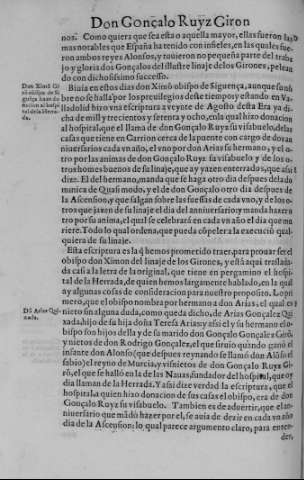 Don Gonçalo Ruyz Giron
nos. Como quiera que sea esto a aquella mayor, ellas fueron las
mas notables que España ha tenido con infieles, en las quales fue-
ron ambos reyes Alonsos, y tuuieron no pequeña parte del traba-
jo y gloria dos Gonçalos del illustre linaje de los Girones, pelean
do con dichosissimo successo.
Biuia en estos dias don Ximō obispo de Siguença, aunque su nō
bre no se halla por los preuilegios de este tiempo y estando en Va-
lladolid hizo vna escriptura a veynte de Agosto desta Era ya di-
cha de mill y trecientos y serenta y ocho, en la qual hizo donacion
al hospital, que el llama de don Gonçalo Ruyz su visabuelo, de las
casas que tiene en Carrion cerca de la puente con cargo de dos an
niuersarios cada vn año, el vno por don Arias su hermano, y el o
tro por las animas de don Gonçalo Ruyz su visabuelo y de los o-
tros homes buenos de su linaje, que ay yazen enterrados, que assi
dize. El del hermano, manda que se haga otro dia despues de la do
minica de Quasi modo, y el de don Gonçalo otro dia despues de
la Ascension, y que salgan sobre las fuessas de cada vno, y de los o-
tros que jazen de su linaje el dia del anniuersario y manda hazer o
tro por su anima, el qual se celebrará en cada vn año el dia que mu
riere. Todo lo qual ordena, que pueda cōpeler a la execució qual
quiera de su linaje.
Esta escriptura es la q̃ hemos prometido traer, para prouar ser el
obispo don Ximon del linaje de los Girones, y està aqui traslada-
da casi a la letra de la original, que tiene en pergamino el hospi-
tal de la Herrada, de quien hemos largamente hablado, en la qual
ay algunas cosas de consideracion para nuestro proposito. Lo pri
mero, que el obispo nombra por hermano a don Arias, el qual es
nieto sin alguna duda, como queda dicho, de Arias Gonçalez Qui
xada, hijo de su hija doña Teresa Arias y assi el y su hermano el o-
bispo son hijos della y de su marido don Gonçalo Gonçalez Girō
y nietos de don Rodrigo Gonçalez, el que siruio quando ganó el
infante don Alonso (que despues reynando se llamó don Alōso el
sabio) el reyno de Murcia, y visnietos de don Gonçalo Ruyz Gi-
rō, el que se halló en la de las Nauas, fundador del hospital, que oy
dia llaman de la Herrada. Y assi dize verdad la escriptura, que el
hospital, a quien hizo donacion de sus casas el obispo, era de don
Gonçalo Ruyz su visabuelo. Tambien es de aduertir, que el an-
niuersario que mādò hazer por el, se auia de dezir en cada vn año
dia de la Ascension: lo qual parece argumento claro, para enten-
der,
Don Ximō Gi
Dō Arias Qui
xada.